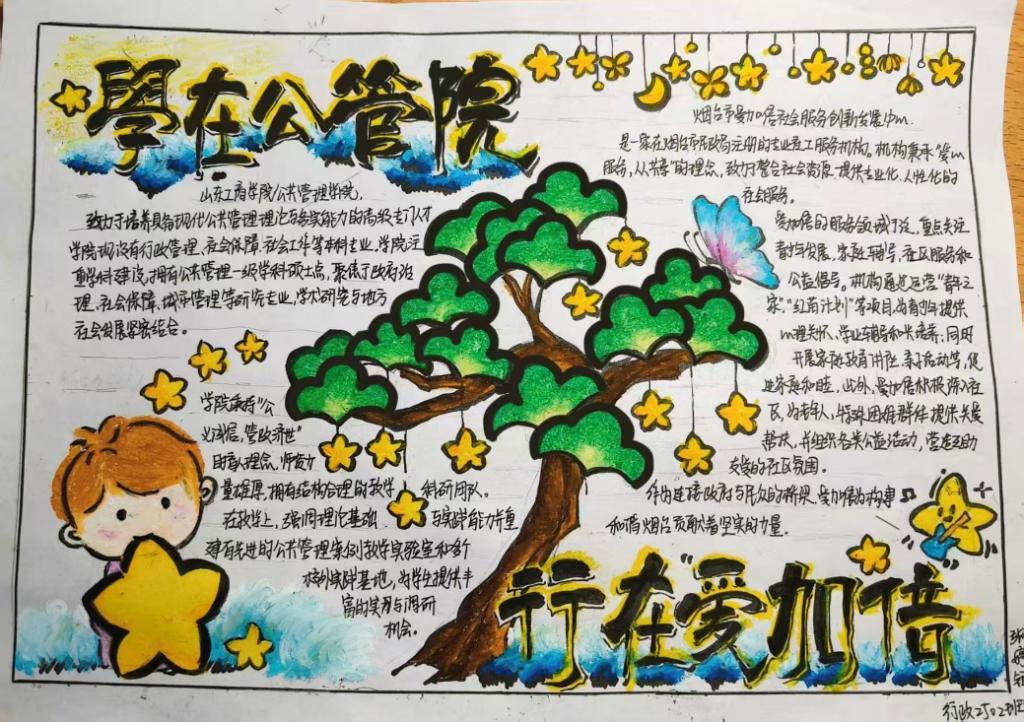 學在公管院
山东工商学院公共管理学院,
致力于培养具备现代公共管理理论与务实能力的高级专门人才
学院现设有行政管理、社会保障、社会工作等本科专业,学院注
重学科建设,拥有公共管理一级学科硕士点,聚焦于政府治
理、社会保障、城市管理等研究专业,学术研究与地方
社会发展紧密结合。
学院秉持“公
义诚信,管政济世”
的育人理念,师资力
量雄厚,拥有结构合理的教学
科研团队。
在教学上,强调理论基础
与实践能力并重
建有先进的公共管理案例教学实验室和多个
校外实践基地,为学生提供丰
富的实习与调研
机会。
烟台市爱加倍社会服务创新发展中心.
是一家在烟台市民政局注册的专业社工服务机构。机构秉承“爱心
服务,从共享”的理念,致力于整合社会资源,提供专业化、人性化的
社会服务。
爱加倍的服务领域广泛,重点关注
青少年发展,家庭辅导,社区服务和
公益倡导。机构通过运营“青年之
家”“红苗计划”等项目,为青少年提供
心理关怀、学业辅导和兴趣培养,同时
开展家庭教育讲座,亲子活动等,促
进家庭和睦。此外,爱加倍积极深入社
区,为老年人,特殊困难群体提供关爱
帮扶,并组织各类公益活动,营造互助
友爱的社区氛围。
作为连接政府与民众的桥梁,爱加倍为构建
和谐烟台贡献着坚实的力量。
行在“爱加倍
行政2502班